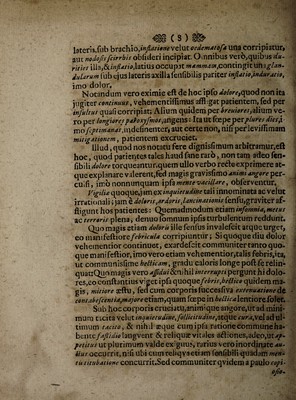 (8)
lateris, sub brachio, inflatione velut œdematosa una corripiatur,
aut nodosis scirrhis obsideri incipiat. Omnibus verò, quibus du-
rities illa, & inflatio, latius occupat mammam, contingit un glan-
dularum sub ejus lateris axilla sensibilis pariter inflatio, induratio,
imo dolor.
Notandum vero eximie est de hoc ipso dolore, quod non ita
jugiter continuus, vehementissimus affligat patientem, sed per
insultus quasi corripiat. Alium quidem per breviores, alium ve-
ro per longiores paroxysmos, angens: Ita ut sæpe per plures dies, i-
mo septimanas, indesinenter, aut certe non, nisi per levissimam
mitigationem, patientem excruciet.
Illud, quod nos notatu fere dignissimum arbitramur, est
hoc, quod patientes tales haud sane raro, non tam adeo sen-
sibili dolore torqueantur, quem ullo verbo recte exprimere at-
que explanare valerent, sed magis gravissimo animi angore per-
culsi, imò nonnunquam ipsa mente vacillare, observentur.
Vigilia quoque, jam ex inquietudine tali innominata ac velut
irrationali; jam è doloris, ardoris, lancinationis sensu, graviter af-
fligunt hos patientes: Quemadmodum etiam insomnia, metus
ac terroris plena, denuo somnum ipsis turbulentum reddunt.
Quo magis etiam doloris ille sensus invalescit atque urget,
eo manifestiore febricula corripiuntur; Siquoque diu dolor
vehementior continuet, exardescit communiter tanto quo-
que manifestior, imo vero etiam vehementior, talis febris; ita,
ut communissime hecticam, gradu caloris longe post se relin-
quat; Quo magis vero assidui & nihil interrupti pergunt hi dolo-
res, eo constantius viget ipsi quoque febris, hectico quidem ma-
gis, mitiore æstu, sed cum corporis successiva extenuatione de
contabescentia, majore etiam, quam sæpe in hectica lentiore solet.
Sub hoc corporis cruciatu, animique angore, ut ad mini-
mum tacita velut inquietudine, sollicitudine, atque cura, vel ad ul-
timum tacito, & nihil æque cum ipsa ratione commune ha-
bente fastidio languent & reliquæ vitales actiones, adeo, ut ap-
petitus ut plurimum valde exiguus, rarius vero inordinate an-
xius occurrit, nisi ubi cum reliquis etiam sensibili quadam men-
tis titubatione concurrit. Sed communiter quidem a paulo copi-
osio.